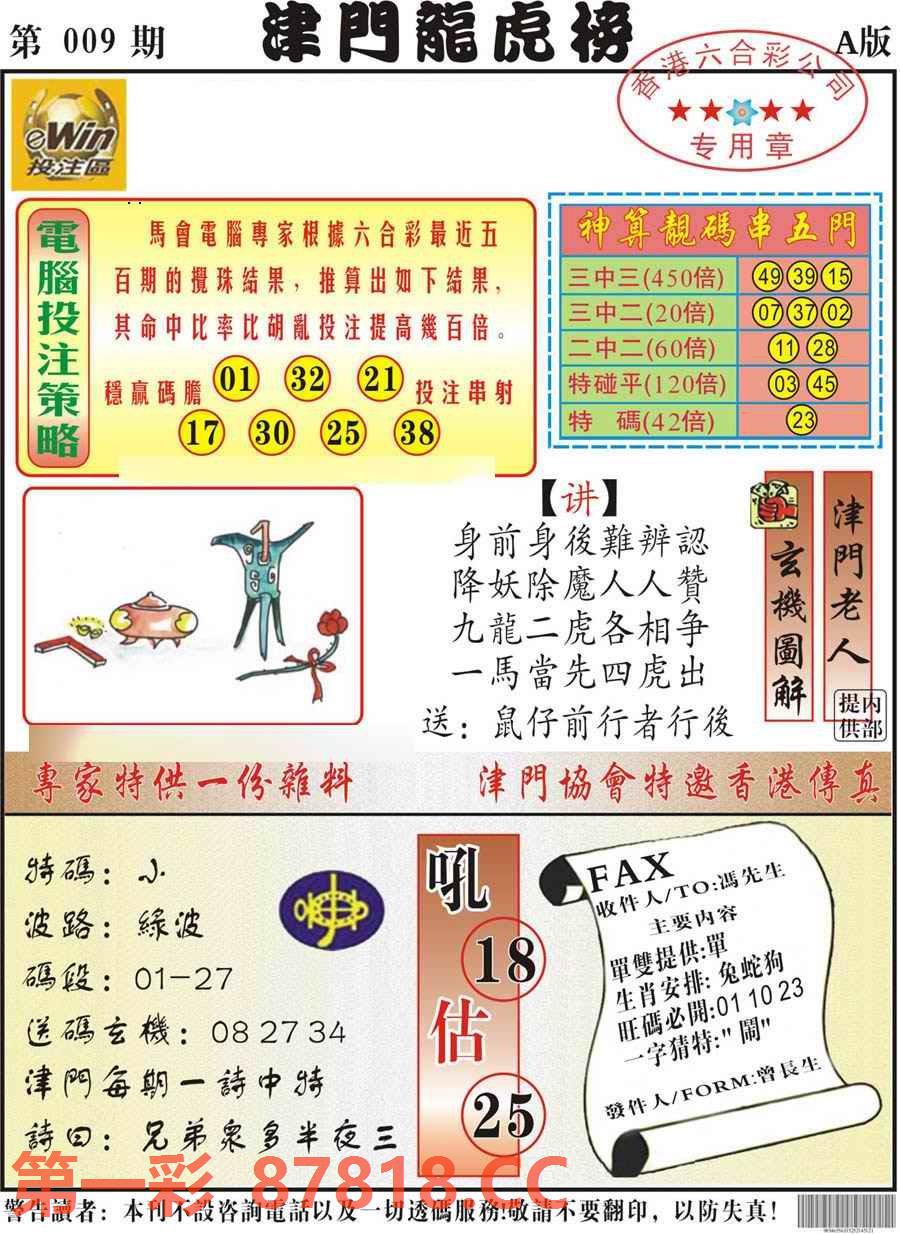 第 009 期
津門龍虎榜
A版
香港六合彩公司
★★★★
专用章
eWin
投注區
電腦投注策略
馬會電腦專家根據六合彩最近五
百期的攪珠結果，推算出如下結果，
其命中比率比胡亂投注提高幾百倍。
穩贏碼膽 01 32 21 投注串射
17 30 25 38
神算靚碼串五門
三中三(450倍) 49 39 15
三中二(20倍) 07 37 02
二中二(60倍) 11 28
特碰平(120倍) 03 45
特 碼(42倍) 23
1
【讲】
身前身後難辨認
降妖除魔人人贊
九龍二虎各相争
一馬當先四虎出
送：鼠仔前行者行後
玄機圖解
津門老人
内部提供
專家特供一份雜料
津門協會特邀香港傳真
特碼：小
波路：綠波
碼段：01-27
送碼玄機：08 27 34
津門每期一詩中特
詩曰：兄弟衆多半夜三
吼
18
估
25
FAX
收件人/TO:馮先生
主要内容
單雙提供:單
生肖安排: 兔蛇狗
旺碼必開:01 10 23
一字猜特:"鬧"
發件人/FORM:曾長生
第一彩 87818.CC
警告讀者：本刊不設咨詢電話以及一切透碼服務!敬請不要翻印，以防失真!